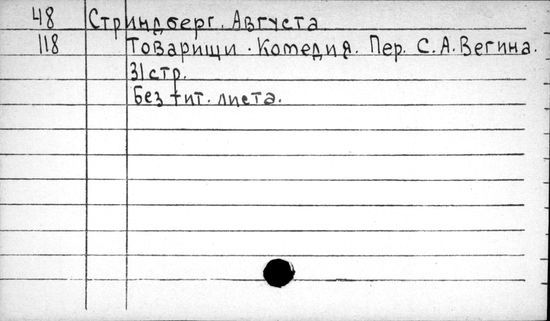 48 Стриндберг. Августа
118 Товарищи. Комедия. Пер. С. А. Вегина.
31 стр.
Без тит. листа.